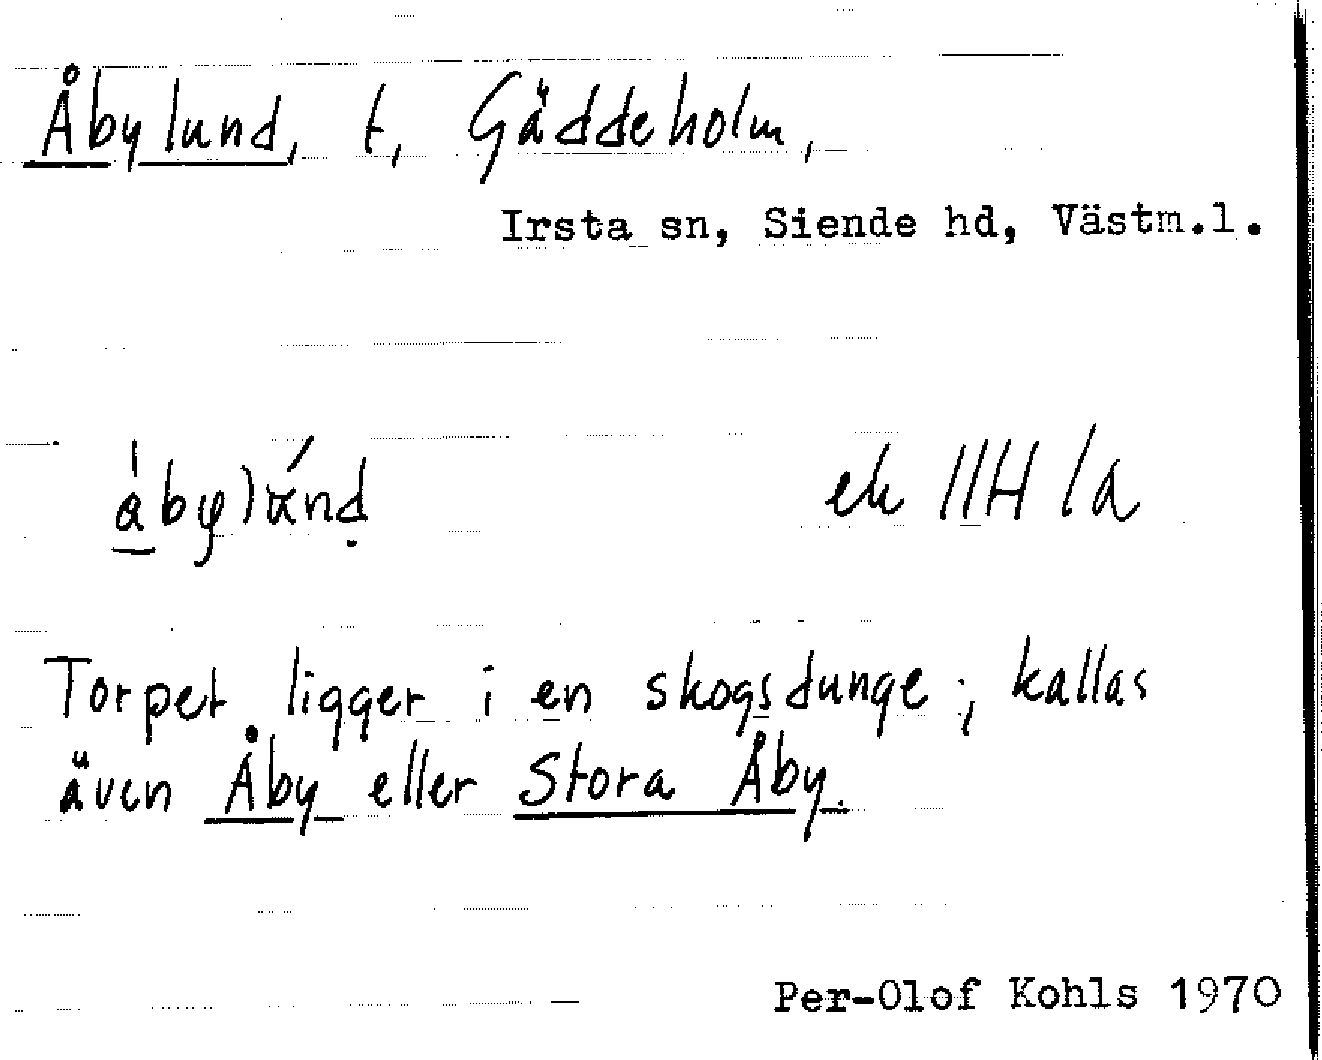 Åbylund, t, Gäddeholm,
Irsta sn, Siende hd, Västm.l.
ek 11H 1a
Torpet ligger i en skogsdunge; kallas
även Åby eller Stora Åby.
Per-Olof Kohls 1970